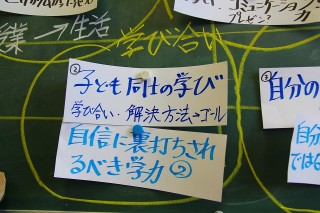 コミュニケーション力
プレゼン?
業→生活
学び合い
②
子ども同士の学び
学び合い・解決方法→ゴール
自信に裏打ちされ
るべき学力②
③
自分の
自分
では